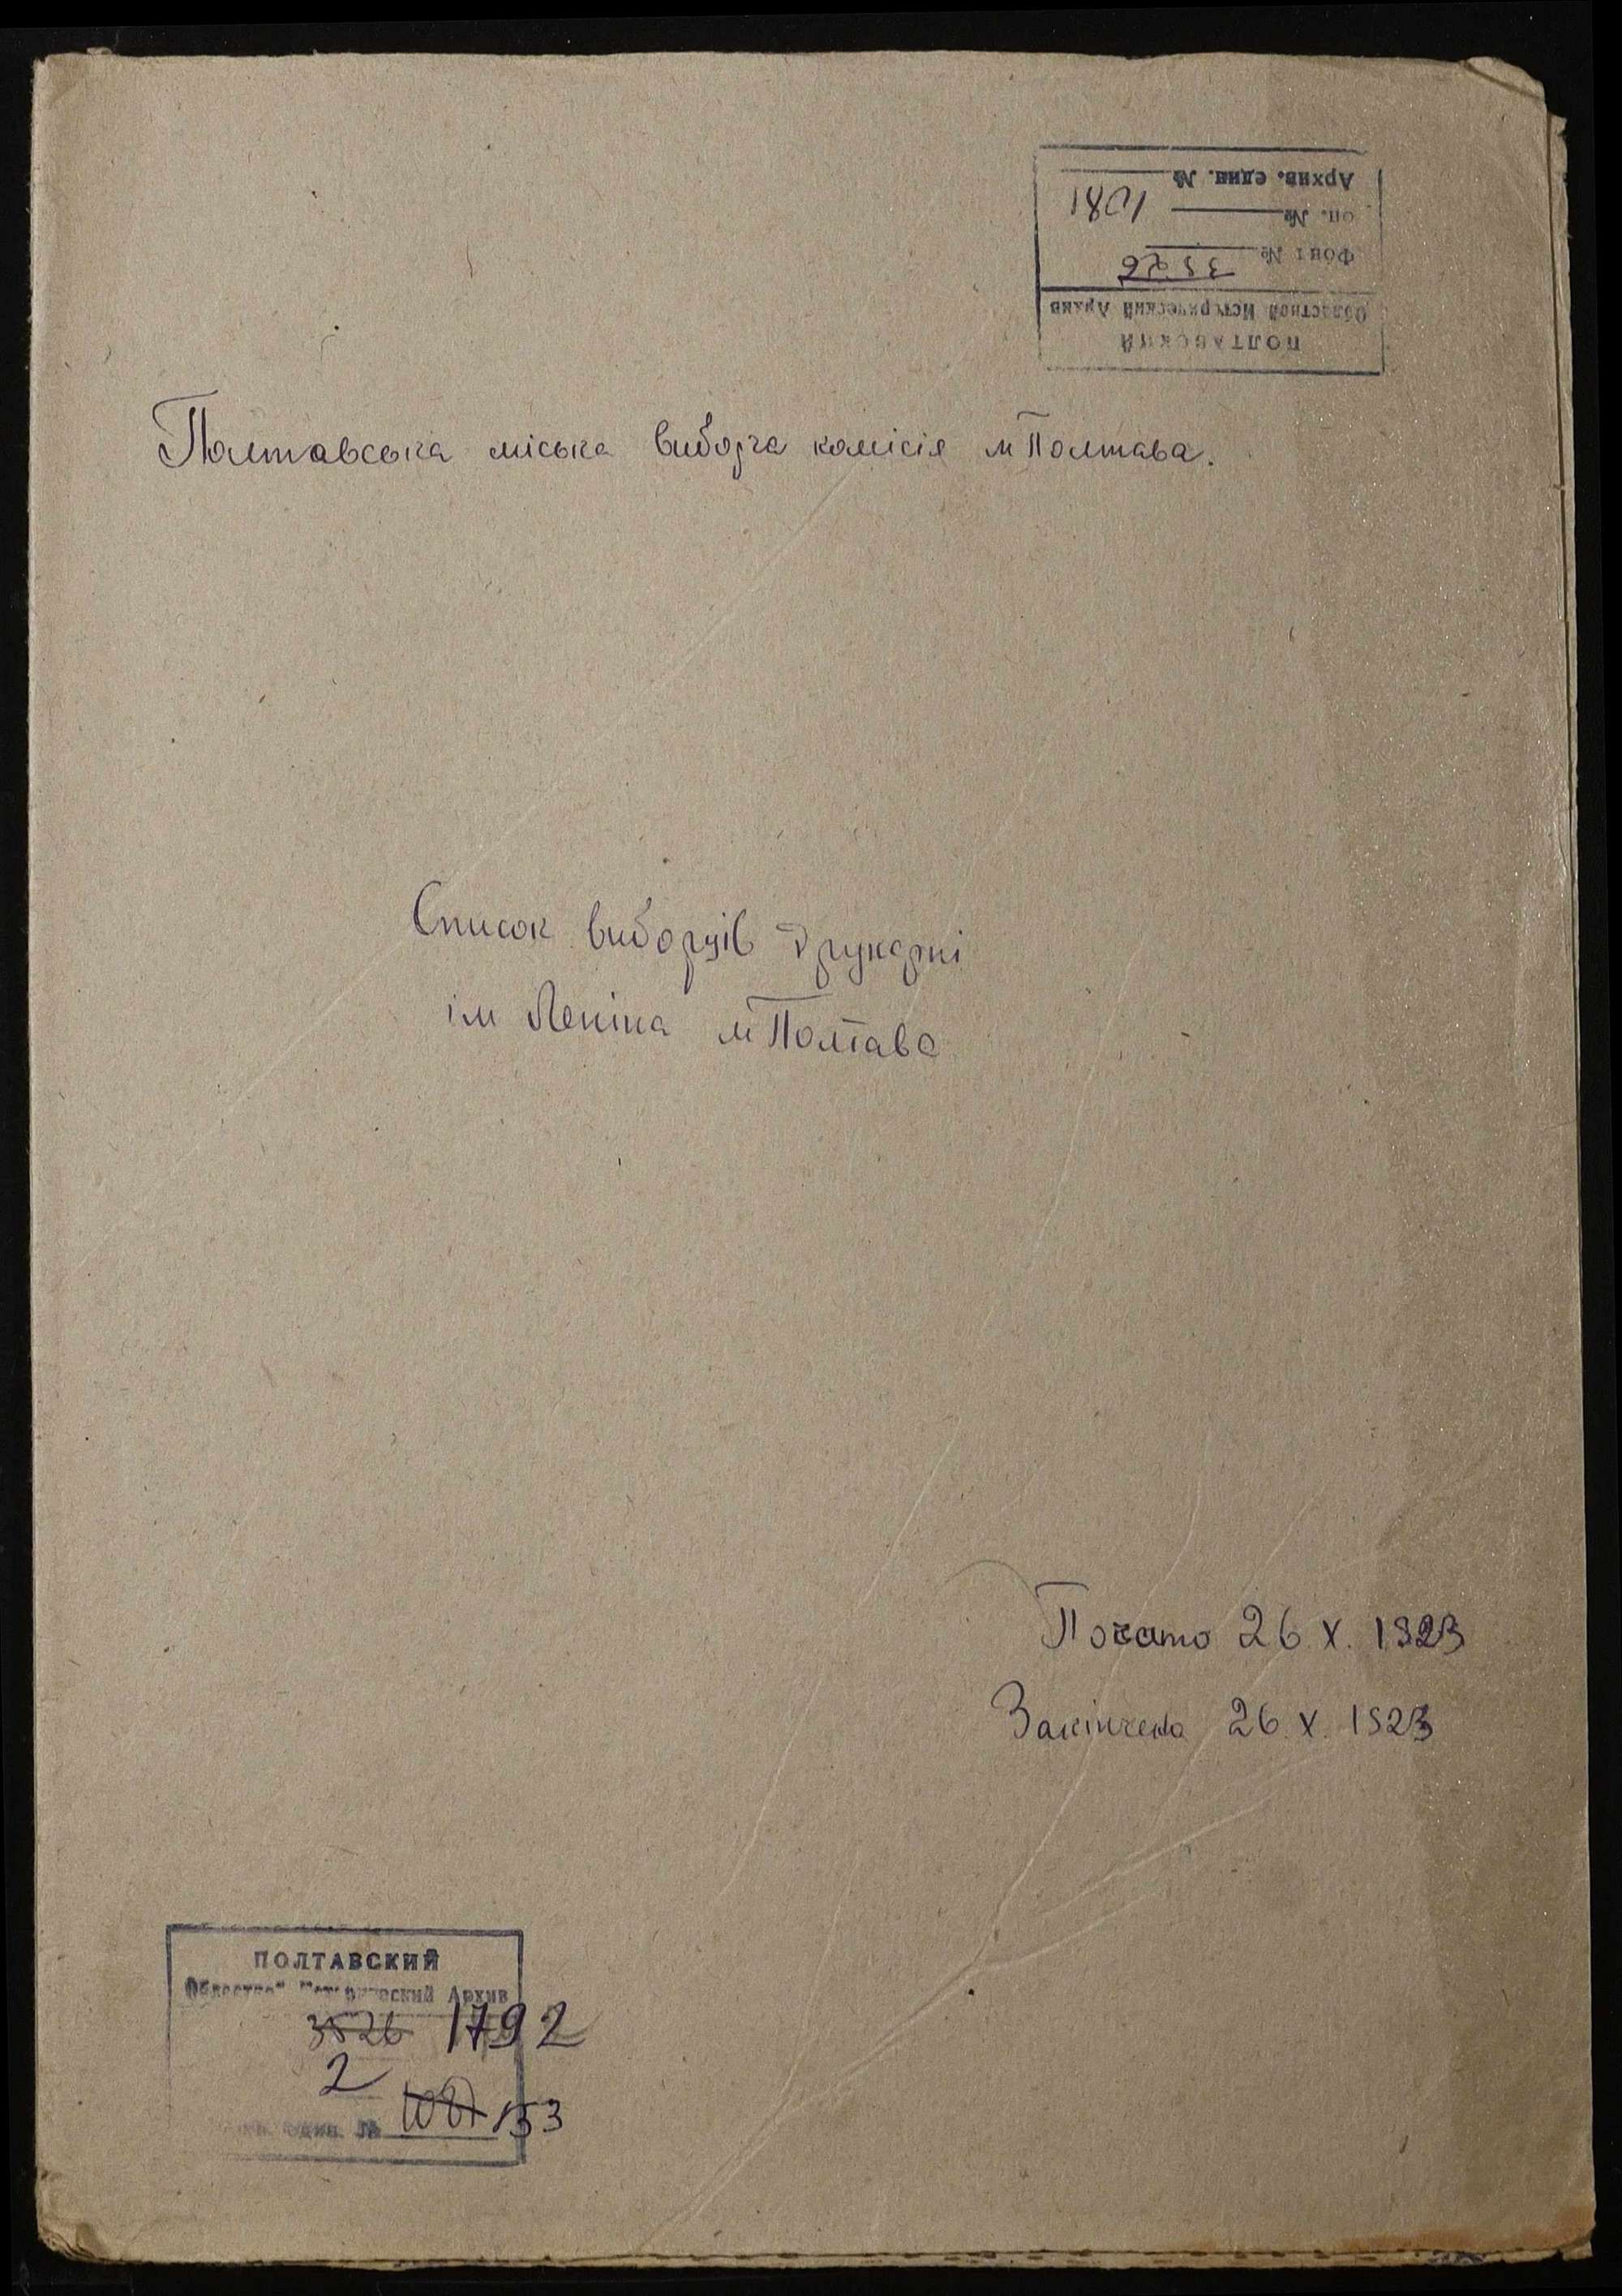 ПОЛТАВСКИЙ
Областной Исторический Архив
Фонд № 3526
оп. №
Архив. един. № 1081
Полтавська міська виборча комісія м Полтава.
Список виборців друкарні
ім Леніна м Полтава
Почато 26 X. 1923
Закінчено 26 X. 1923
ПОЛТАВСКИЙ
Областной Исторический Архив
3526 1792
2
един. № 1081 153